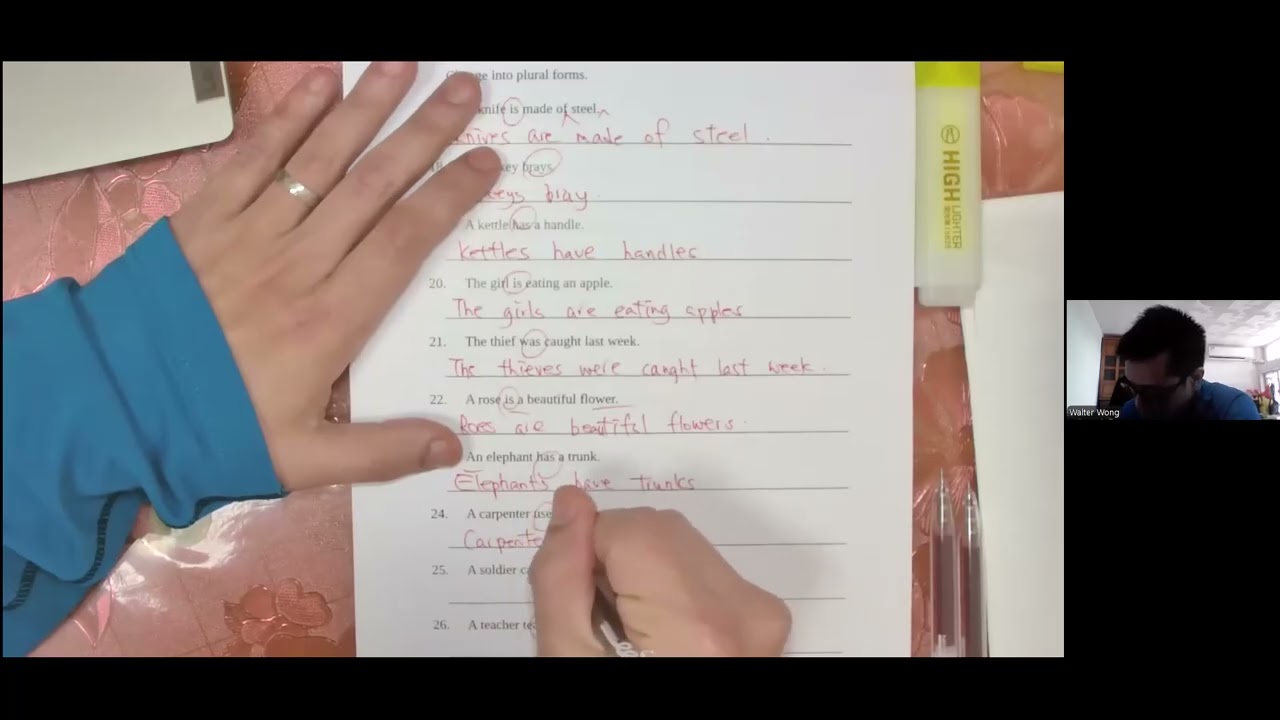 into plural forms.
knife is made of steel.
knives are made of steel.
18. key brays.
keys bray.
A kettle has a handle.
Kettles have handles
20. The girl is eating an apple.
The girls are eating apples
21. The thief was caught last week.
The thieves were caught last week.
22. A rose is a beautiful flower.
Roes are beautiful flowers.
An elephant has a trunk.
Elephants have trunks
24. A carpenter use
Carpente
25. A soldier ca
26. A teacher te
HIGH
LIGHTER
Walter Wong